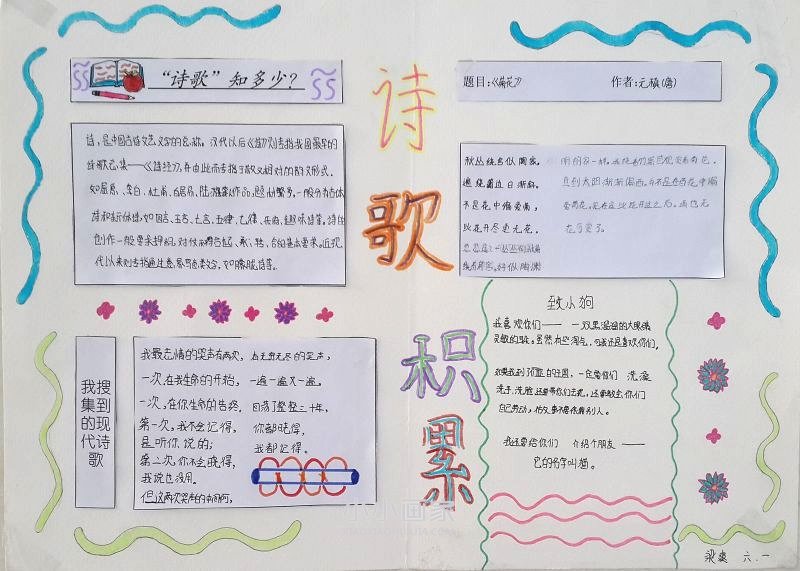 “诗歌”知多少？
诗，是中国古时文艺文学的名称。汉代以后《诗》则专指我国最早的
诗歌总集——《诗经》，并由此而专指于散文相对的韵文形式。
如屈原、李白、杜甫、白居易、陆游等作品，题材繁多。一般分为古体
诗和新体诗，如四言、五言、七言、五律、七律、乐府、趣味诗等。诗的
创作一般要求押韵，对仗和符合起、承、转、合的基本要求。近现
代以来则专指通过意、象写的各类诗，如朦胧诗等。
诗歌积累
题目：《菊花》 作者：元稹（唐）
秋丛绕舍似陶家。
遍绕篱边日渐斜。
不是花中偏爱菊，
此花开尽更无花。
一丛一丛的秋菊
绕着房舍。好似陶渊
明的家一样。我绕着篱笆观赏着菊花，
直到太阳渐渐偏西。并不是在百花中偏
爱菊花，见在这比花开过之后，再也无
花可赏了。
我搜集到的现代诗歌
我最忘情的哭声有两次，
一次，在我生命的开始，
一次，在你生命的告终，
第一次，我不会记得，
是听你说的；
第二次，你不会晓得，
我说也没用。
但这两次哭声的中间啊，
有无穷无尽的笑声，
一遍一遍又一遍，
回荡了整整三十年，
你都晓得，
我都记得。
致小狗
我喜欢你们—— 一双黑溜溜的大眼睛
灵敏的耳朵。虽然有些淘气，可我还是喜欢你们，
如果我到了的王国，一定帮你们 洗澡
洗手、洗脸还要带你们去玩，还要教会你们
自己劳动，做事不要依赖别人。
我还要给你们 介绍个朋友 ——
它的名字叫猫。
小小画家
梁爽 六.一